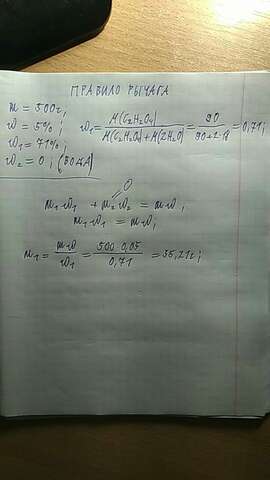 ПРАВИЛО РЫЧАГА
m = 500г;
ω = 5%;
ω₁ = 71%;
ω₂ = 0; (ВОДА)
ω₁ = M(C₂H₂O₄) / M(C₂H₂O₄) + M(2H₂O) = 90 / 90+2·18 = 0,71;
0
m₁ω₁ + m₂ω₂ = mω;
m₁ω₁ = mω;
m₁ = mω / ω₁ = 500·0,05 / 0,71 = 35,21г;